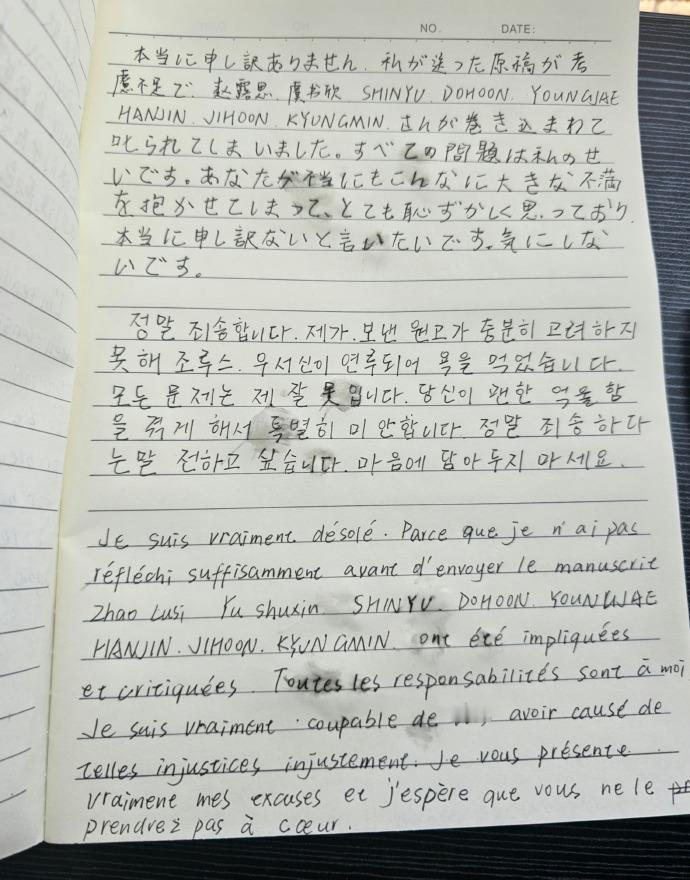 NO. DATE:
本当に申し訳ありません. 私が送った原稿が考
慮不足で. 赵露思. 虞书欣 SHINYU. DOHOON. YOUNGJAE
HANJIN. JIHOON. KYUNGMIN. さんが巻き込まわて
叱られてしまいました。すべての問題は私のせ
いです。あなたが不当にもこんなに大きな不満
を抱かせてしまって、とても恥ずかしく思っており.
本当に申し訳ないと言いたいです。気にしな
いです。
정말 죄송합니다. 제가. 보낸 원고가 충분히 고려하지
못해 조루스. 우서신이 연루되어 욕을 먹었습니다.
모든 문제는 제 잘못입니다. 당신이 괜한 억울함
을 겪게 해서 특별히 미안합니다. 정말 죄송하다
는말 전하고 싶습니다. 마음에 담아두지 마세요.
Je suis vraiment désolé. Parce que je n'ai pas
réfléchi suffisamment avant d'envoyer le manuscrit
Zhao Lusi Yu shuxin. SHINYU. DOHOON. YOUNGJAE
HANJIN. JIHOON. KYUNGMIN. ont été impliquées
et critiquées. Toutes les responsabilités sont à moi
Je suis vraiment coupable de avoir causé de
telles injustices injustement. Je vous présente
vraiment mes excuses et j'espère que vous ne le
prendrez pas à cœur.